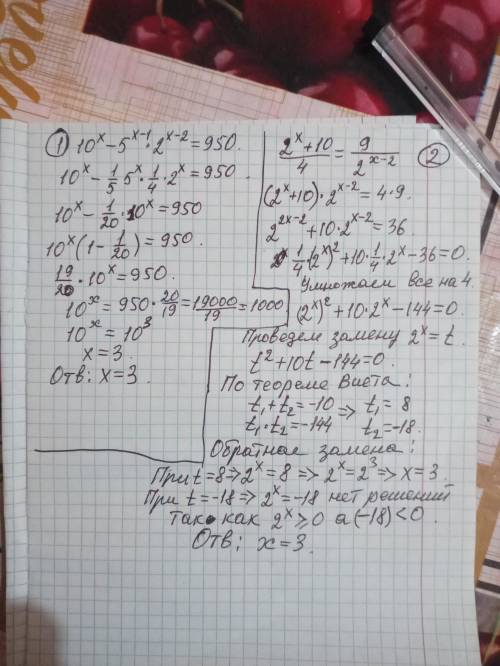 ① 10^x - 5^(x-1) · 2^(x-2) = 950.
10^x - 1/5 5^x · 1/4 · 2^x = 950
10^x - 1/20 · 10^x = 950
10^x (1 - 1/20) = 950.
19/20 · 10^x = 950.
10^x = 950 · 20/19 = 19000/19 = 1000
10^x = 10^3
x = 3.
Отв: x = 3.
② (2^x + 10)/4 = 9/2^(x-2)
(2^x + 10) · 2^(x-2) = 4 · 9.
2^(2x-2) + 10 · 2^(x-2) = 36.
1/4 · (2^x)^2 + 10 · 1/4 · 2^x - 36 = 0.
Умножаем все на 4.
(2^x)^2 + 10 · 2^x - 144 = 0.
Проведем замену 2^x = t.
t^2 + 10t - 144 = 0.
По теореме Виета:
t1 + t2 = -10 => t1 = 8
t1 · t2 = -144 t2 = -18.
Обратная замена:
При t = 8 => 2^x = 8 => 2^x = 2^3 => x = 3.
При t = -18 => 2^x = -18 нет решений
Так как 2^x ⩾ 0 а (-18) < 0.
Отв: x = 3.